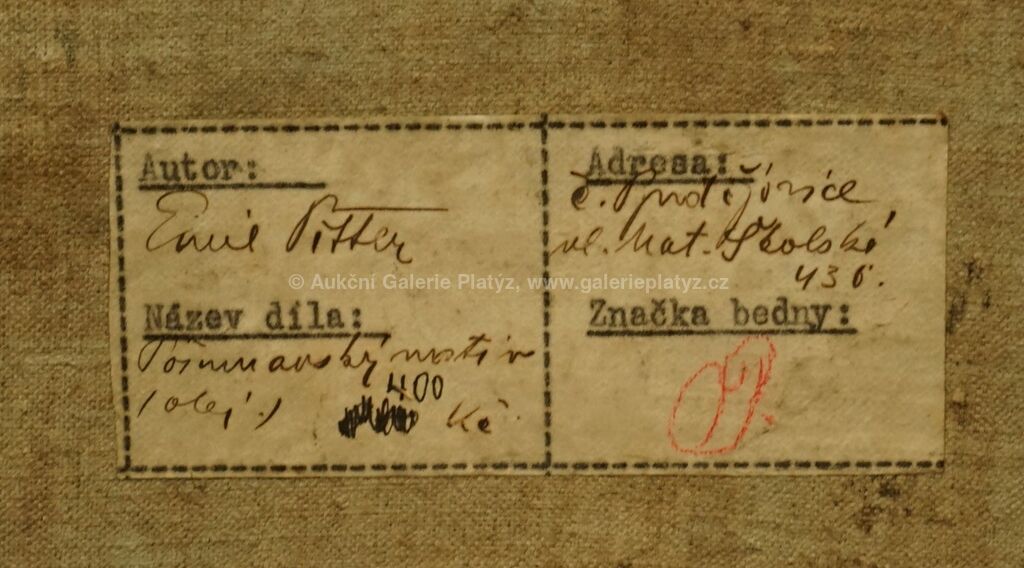 Autor:
Emil Pitter
Název díla:
Pošumavský motiv
(olej.)
400
Kč
Adresa:
Č. Budějovice
ul. Mat. Školské
436.
Značka bedny:
© Aukční Galerie Platýz, www.galerieplatyz.cz